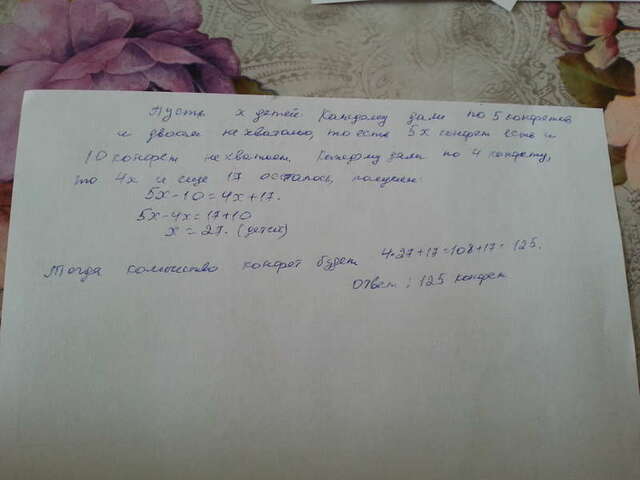 Пусть х детей. Каждому дали по 5 конфетов
и двоим не хватало, то есть 5х конфет есть и
10 конфет не хватает. Каждому дали по 4 конфету,
то 4х и еще 17 осталось, получим:
5х-10=4х+17.
5х-4х=17+10
х=27. (детей)
Тогда количество конфет будет 4·27+17=108+17=125.
Ответ: 125 конфет